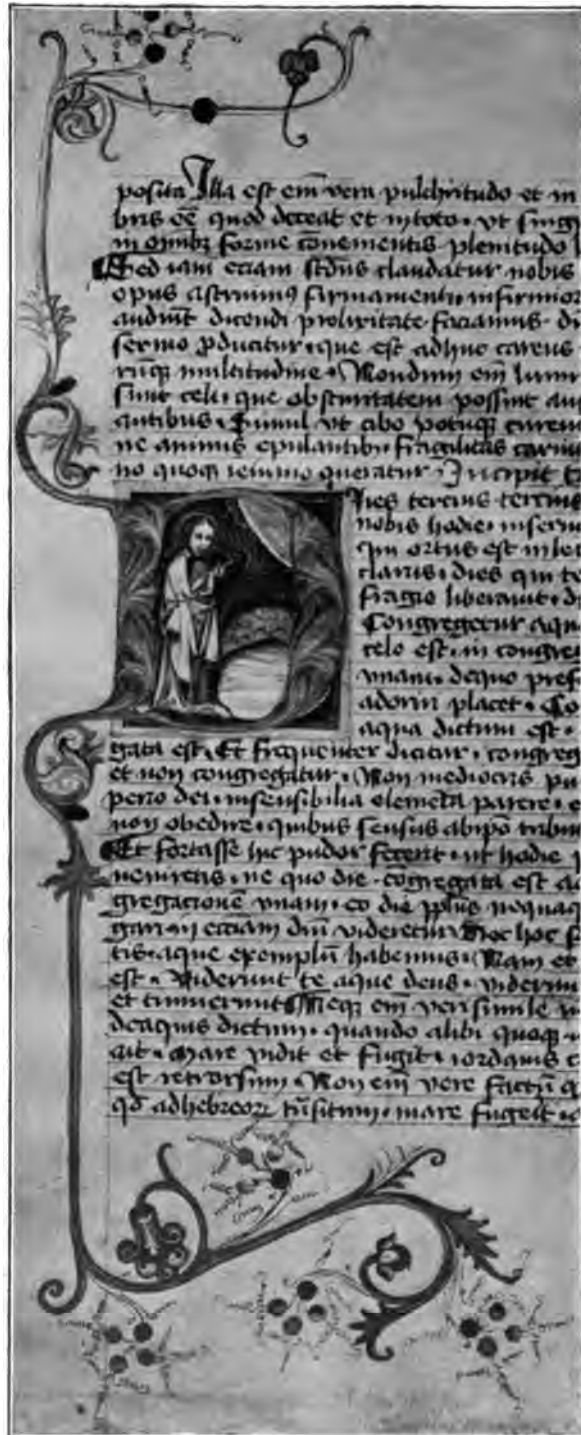 posita Illa est em̄ vera pulchritudo et in
bris ēē quod deceat et in toto · vt sing
in om̄ibꝫ forme cōuenientis plenitudo
Sed iam eciam scd̄us claudatur nobis
opus astruimꝰ firmamenti · infirmior
audiūt dicendi prolixitate faciamus · di
sermo ꝓducitur · que est adhuc careus
multitudine · Nondum em̄ lumi
sunt celi · que obscuritatem possint au
cantibus · Simul vt cibo potuqꝫ curem
ne animis epulantibꝫ fragilitas carnis
no quoqꝫ ieiunio queratur · Incipit t
Dies tercius tercius
nobis hodie · in sermo
qui ortus est in lec
claris · dies qui te
fragio liberauit · d
Congregetur aqu
celo est · in congre
vnam · de quo pref
adoriri placet · Co
aqua dictum est ·
gata est · Et frequenter dicitur · congreg
et non congregatur · Non mediocris pu
perio dei · insensibilia elemēta parere · e
non obedire · quibus sensus ab ip̄o tribu
Et fortasse hic pudor fecerit · ut hodie
ueniretis · ne quo die · cōgregata est a
gregacionē vnam · eo die pplus nequaq
gari in ecciam dn̄i videretur Nec hoc
tis · aque exemplū habemus · Nam et
est · Viderunt te aque deus · viderun
et timuerunt Neqꝫ em̄ verisimile vi
de aquis dictum · quando alibi quoqꝫ ·
ait · Mare vidit et fugit · iordanis c
est retrorsum · Non em̄ vere factū q
qd̄ ad hebreorꝫ tn̄situm · mare fugerit ·